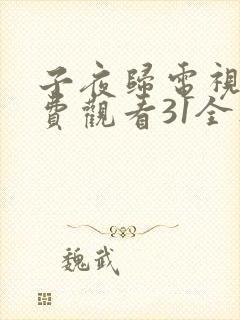 子夜歸電視
費觀看31全
魏武